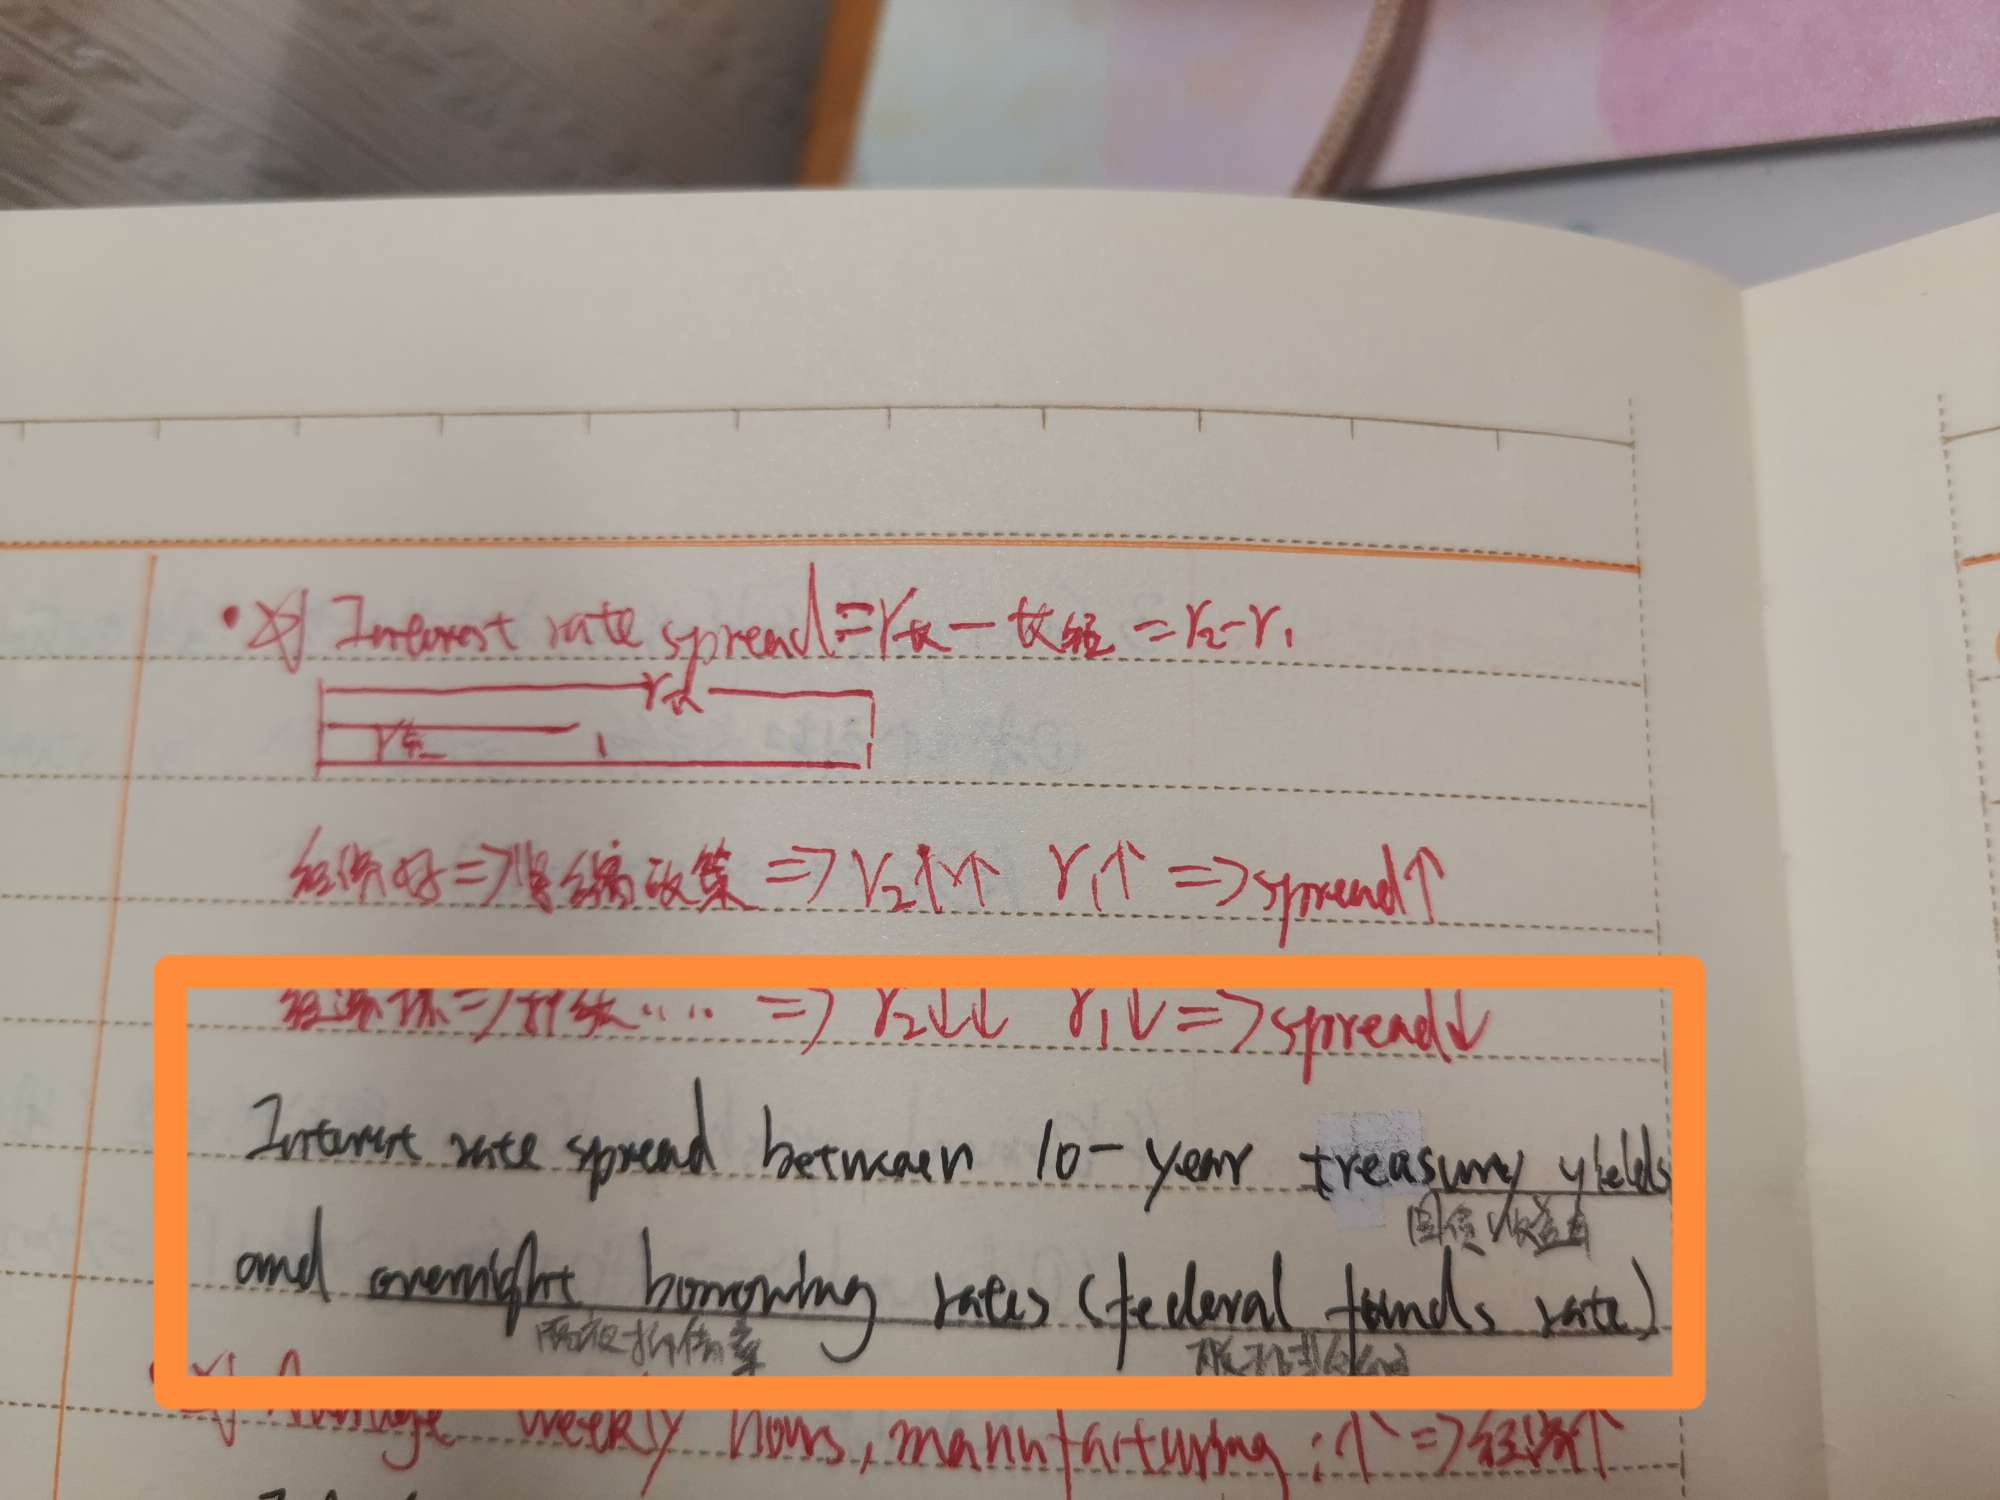 Interest rate spread = r长 - r短 = r₂-r₁
r长
r短
经济好 => 紧缩政策 => r₂↑↑ r₁↑ => spread↑
=> r₂↓↓ r₁↓ => spread↓
Interest rate spread between 10-year treasury yields
国债收益率
and overnight borrowing rates (federal funds rate)
隔夜拆借率
Average weekly hours, manufacturing : ↑ => 经济↑